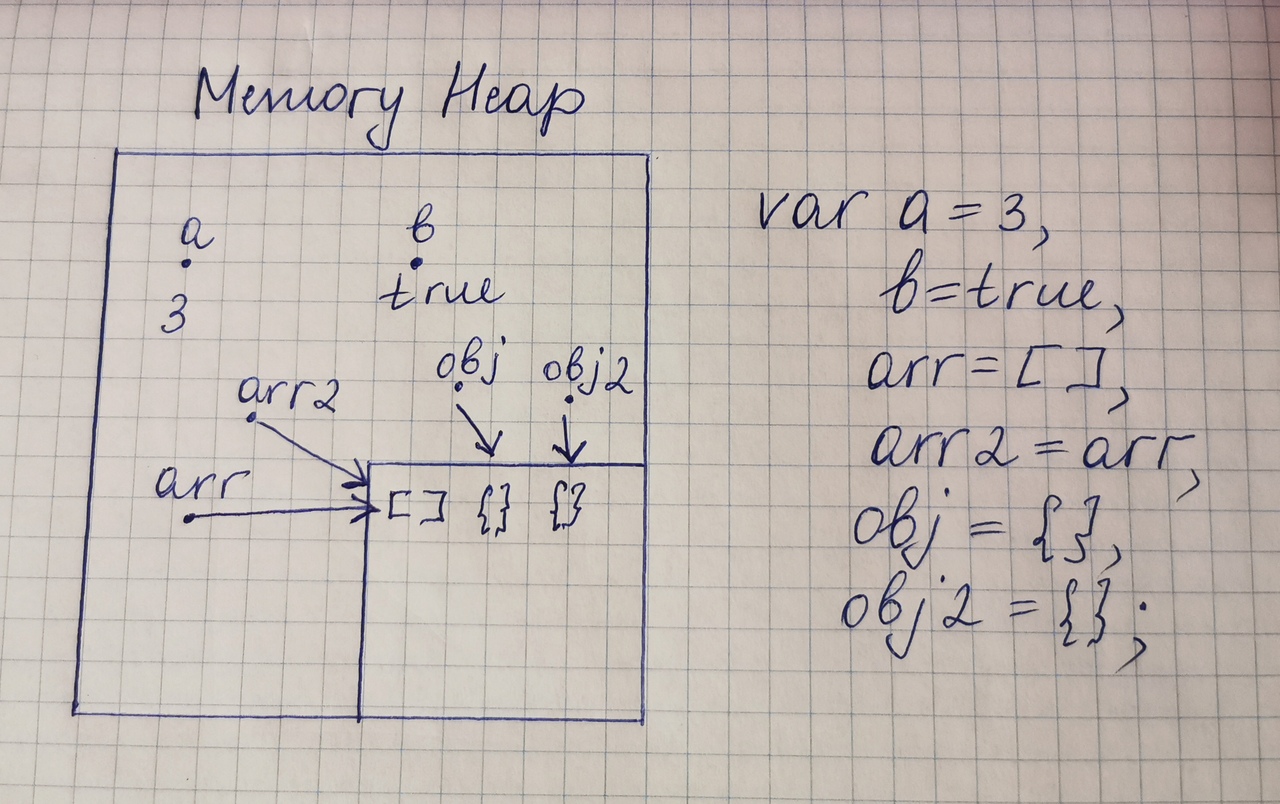 Memory Heap
a
b
3
true
arr2
obj
obj2
arr
[ ] {} {}
var a = 3,
b = true,
arr = [ ],
arr2 = arr,
obj = {},
obj2 = {};